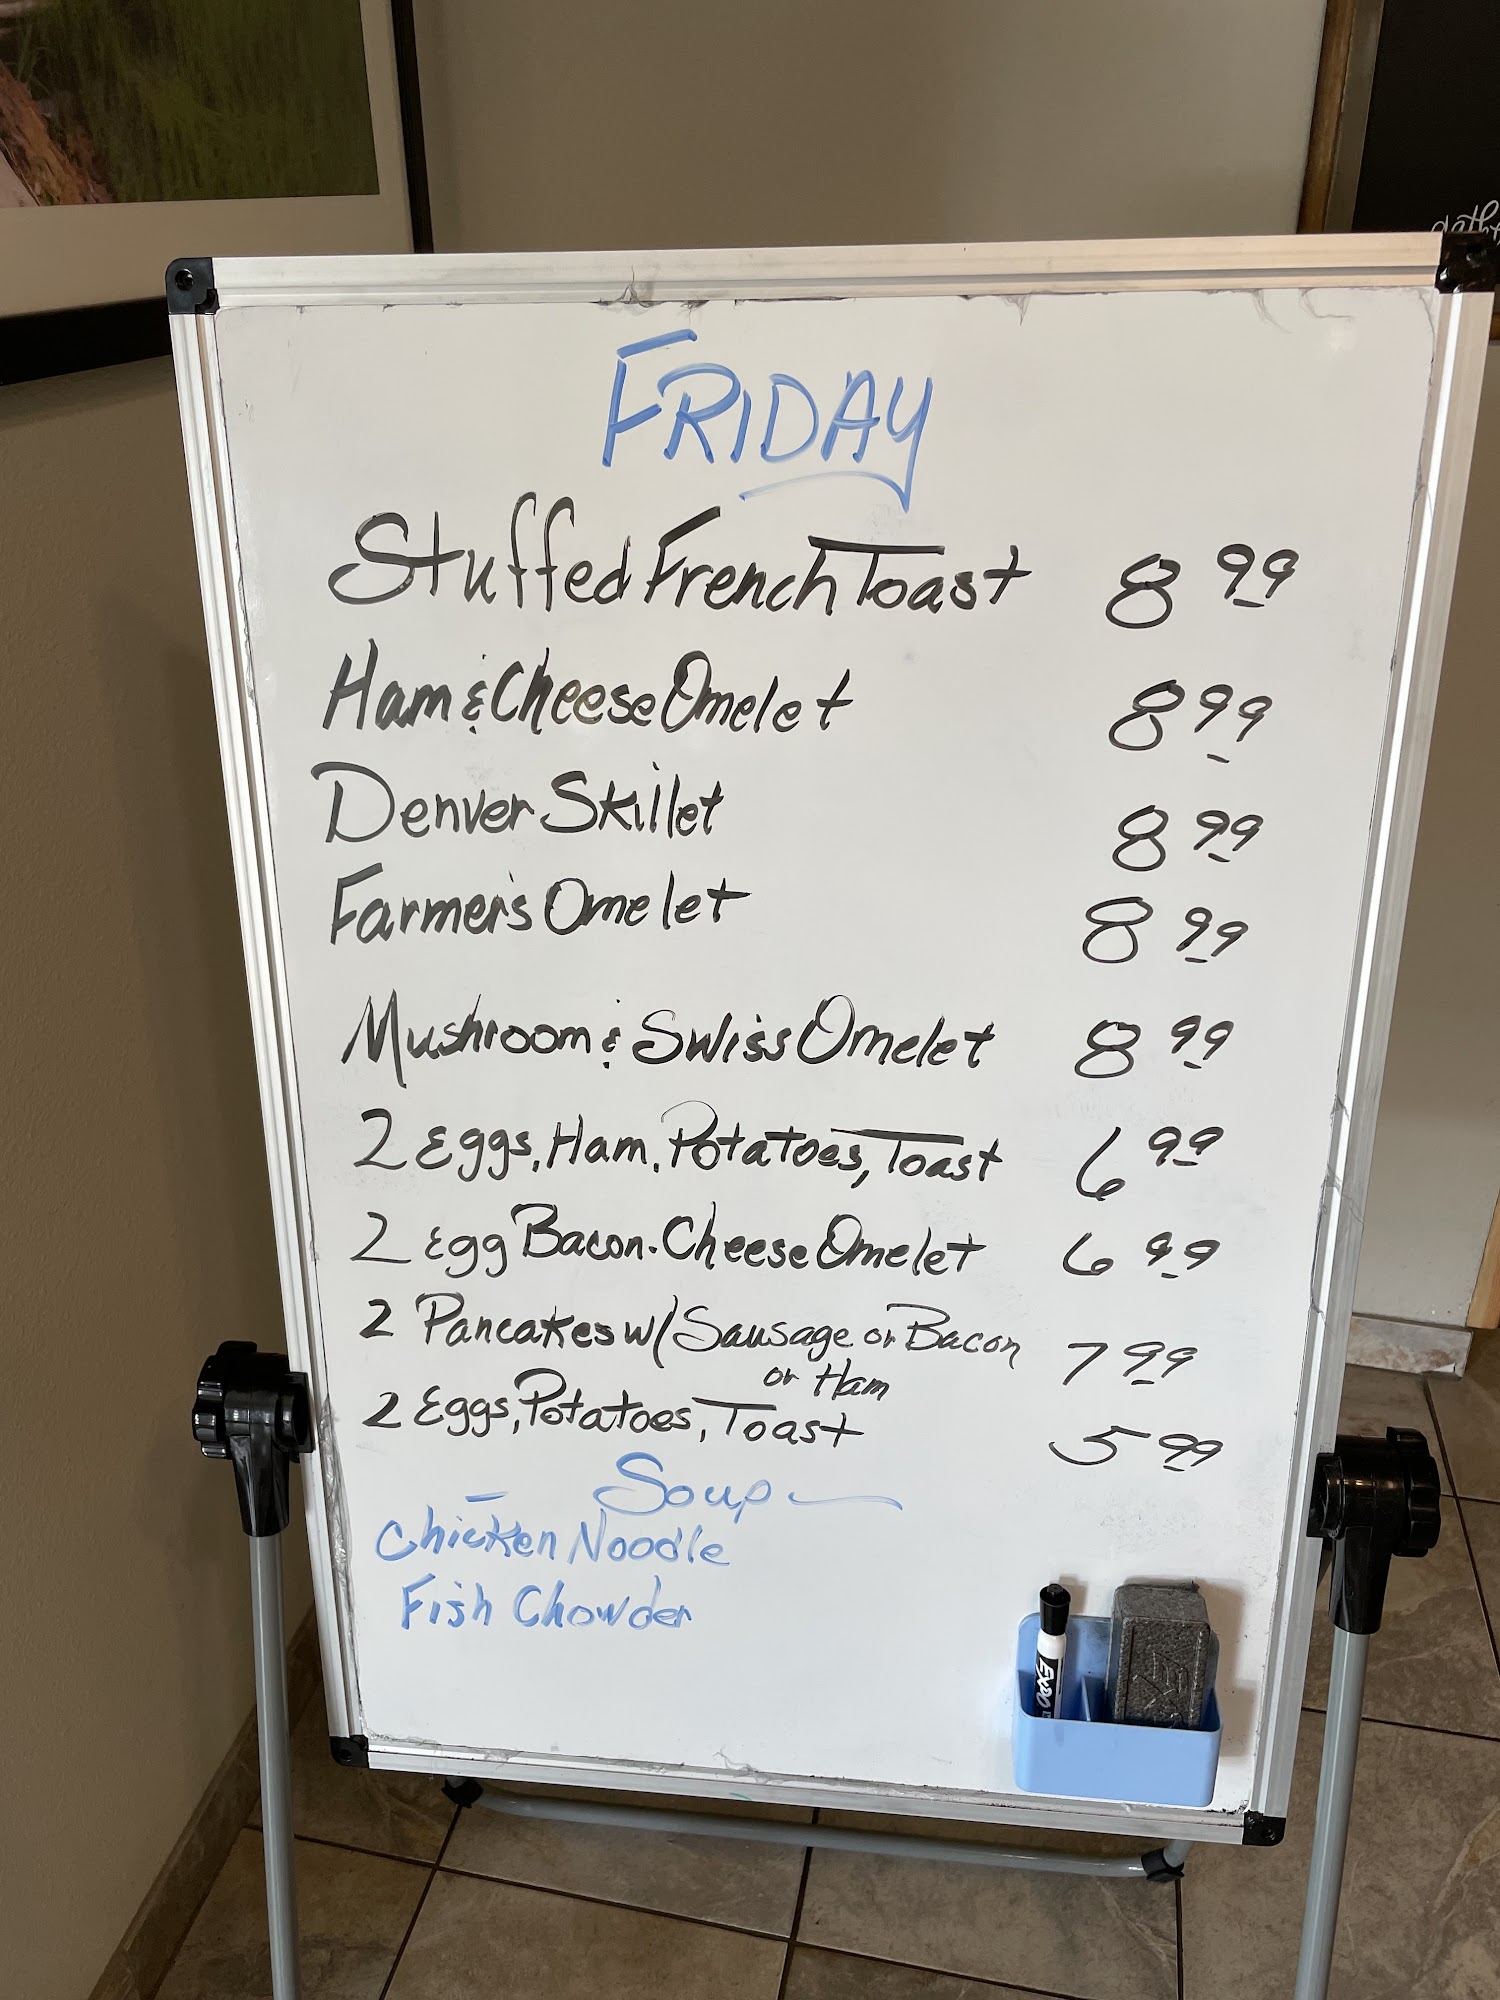 FRIDAY
Stuffed French Toast 8 99
Ham & Cheese Omelet 8 99
Denver Skillet 8 99
Farmer's Omelet 8 99
Mushroom & Swiss Omelet 8 99
2 Eggs, Ham, Potatoes, Toast 6 99
2 Egg Bacon-Cheese Omelet 6 99
2 Pancakes w/ Sausage or Bacon 7 99
or Ham
2 Eggs, Potatoes, Toast 5 99
Soup
Chicken Noodle
Fish Chowder
EXPO